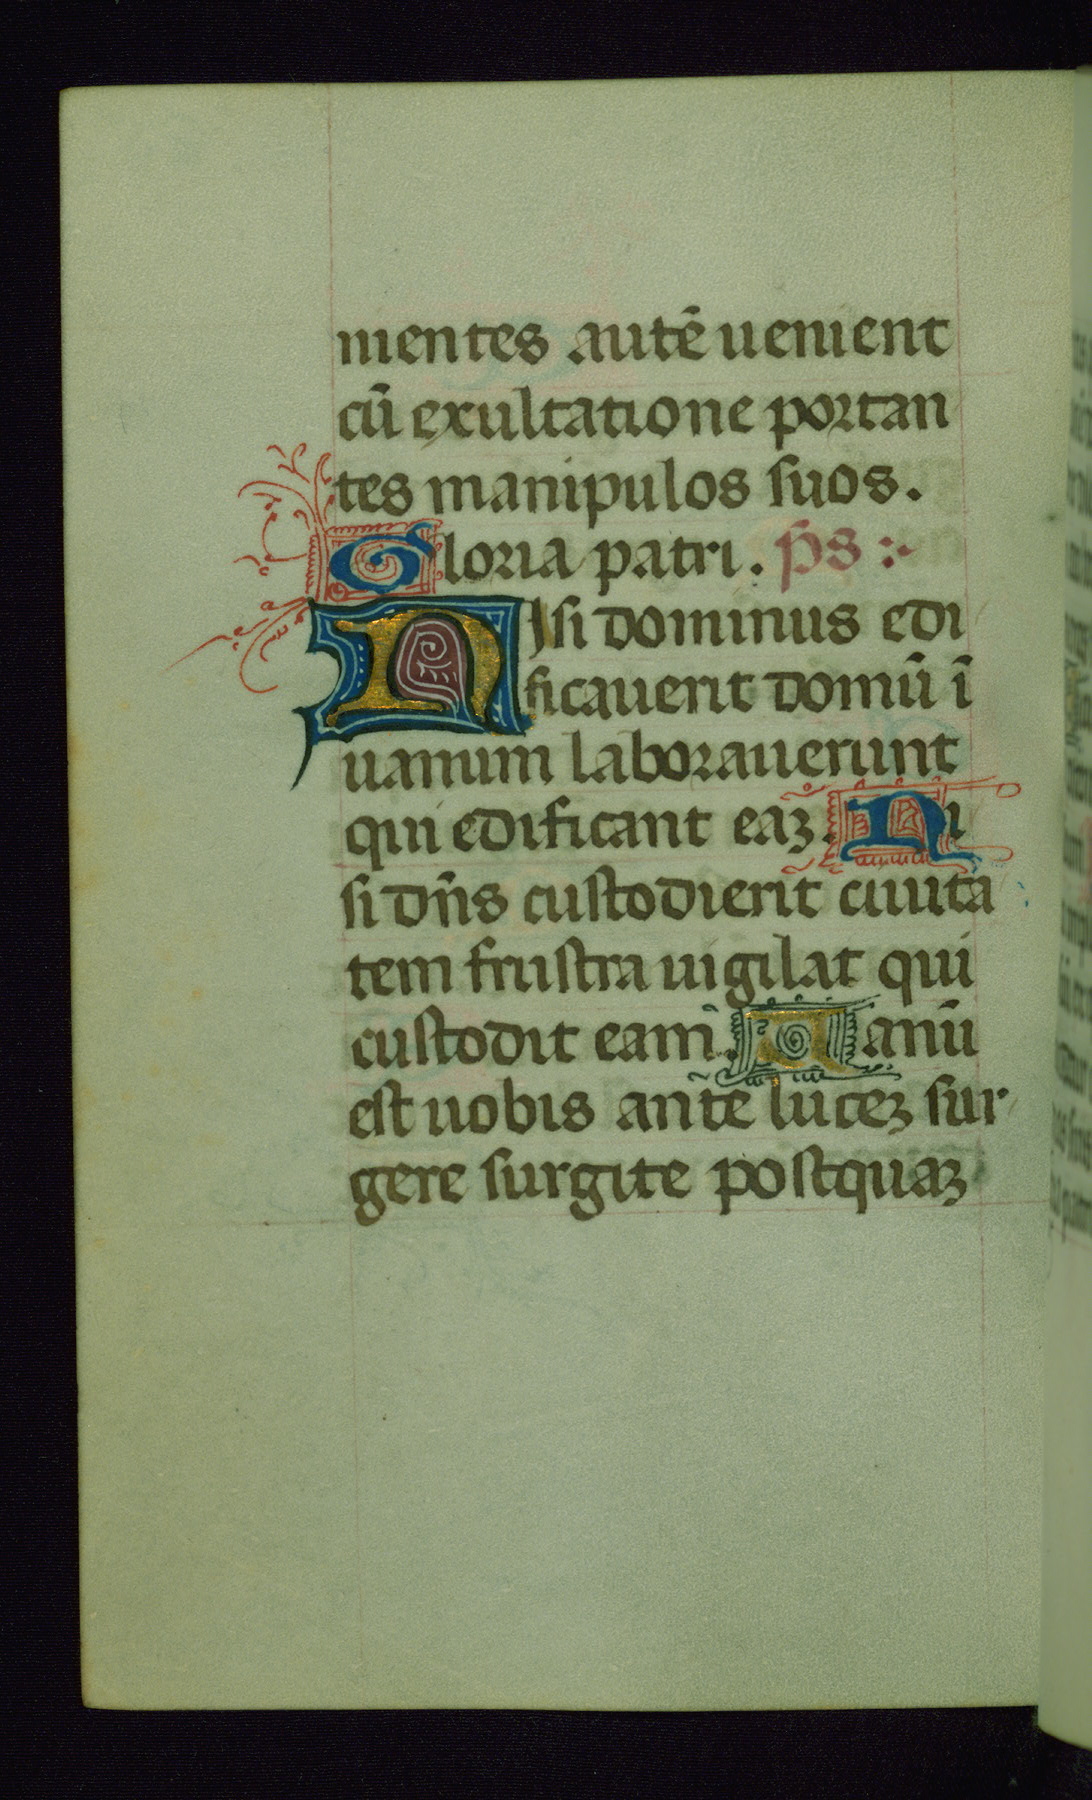 nientes autē uenient
cū exultatione portan
tes manipulos suos.
Gloria patri. ps :~
Nisi dominus edi
ficauerit domū ī
uanum laborauerunt
qui edificant eaꝫ. Ni
si dn̄s custodierit ciuita
tem frustra uigilat qui
custodit eam. Uanū
est uobis ante luceꝫ sur
gere surgite postquaꝫ